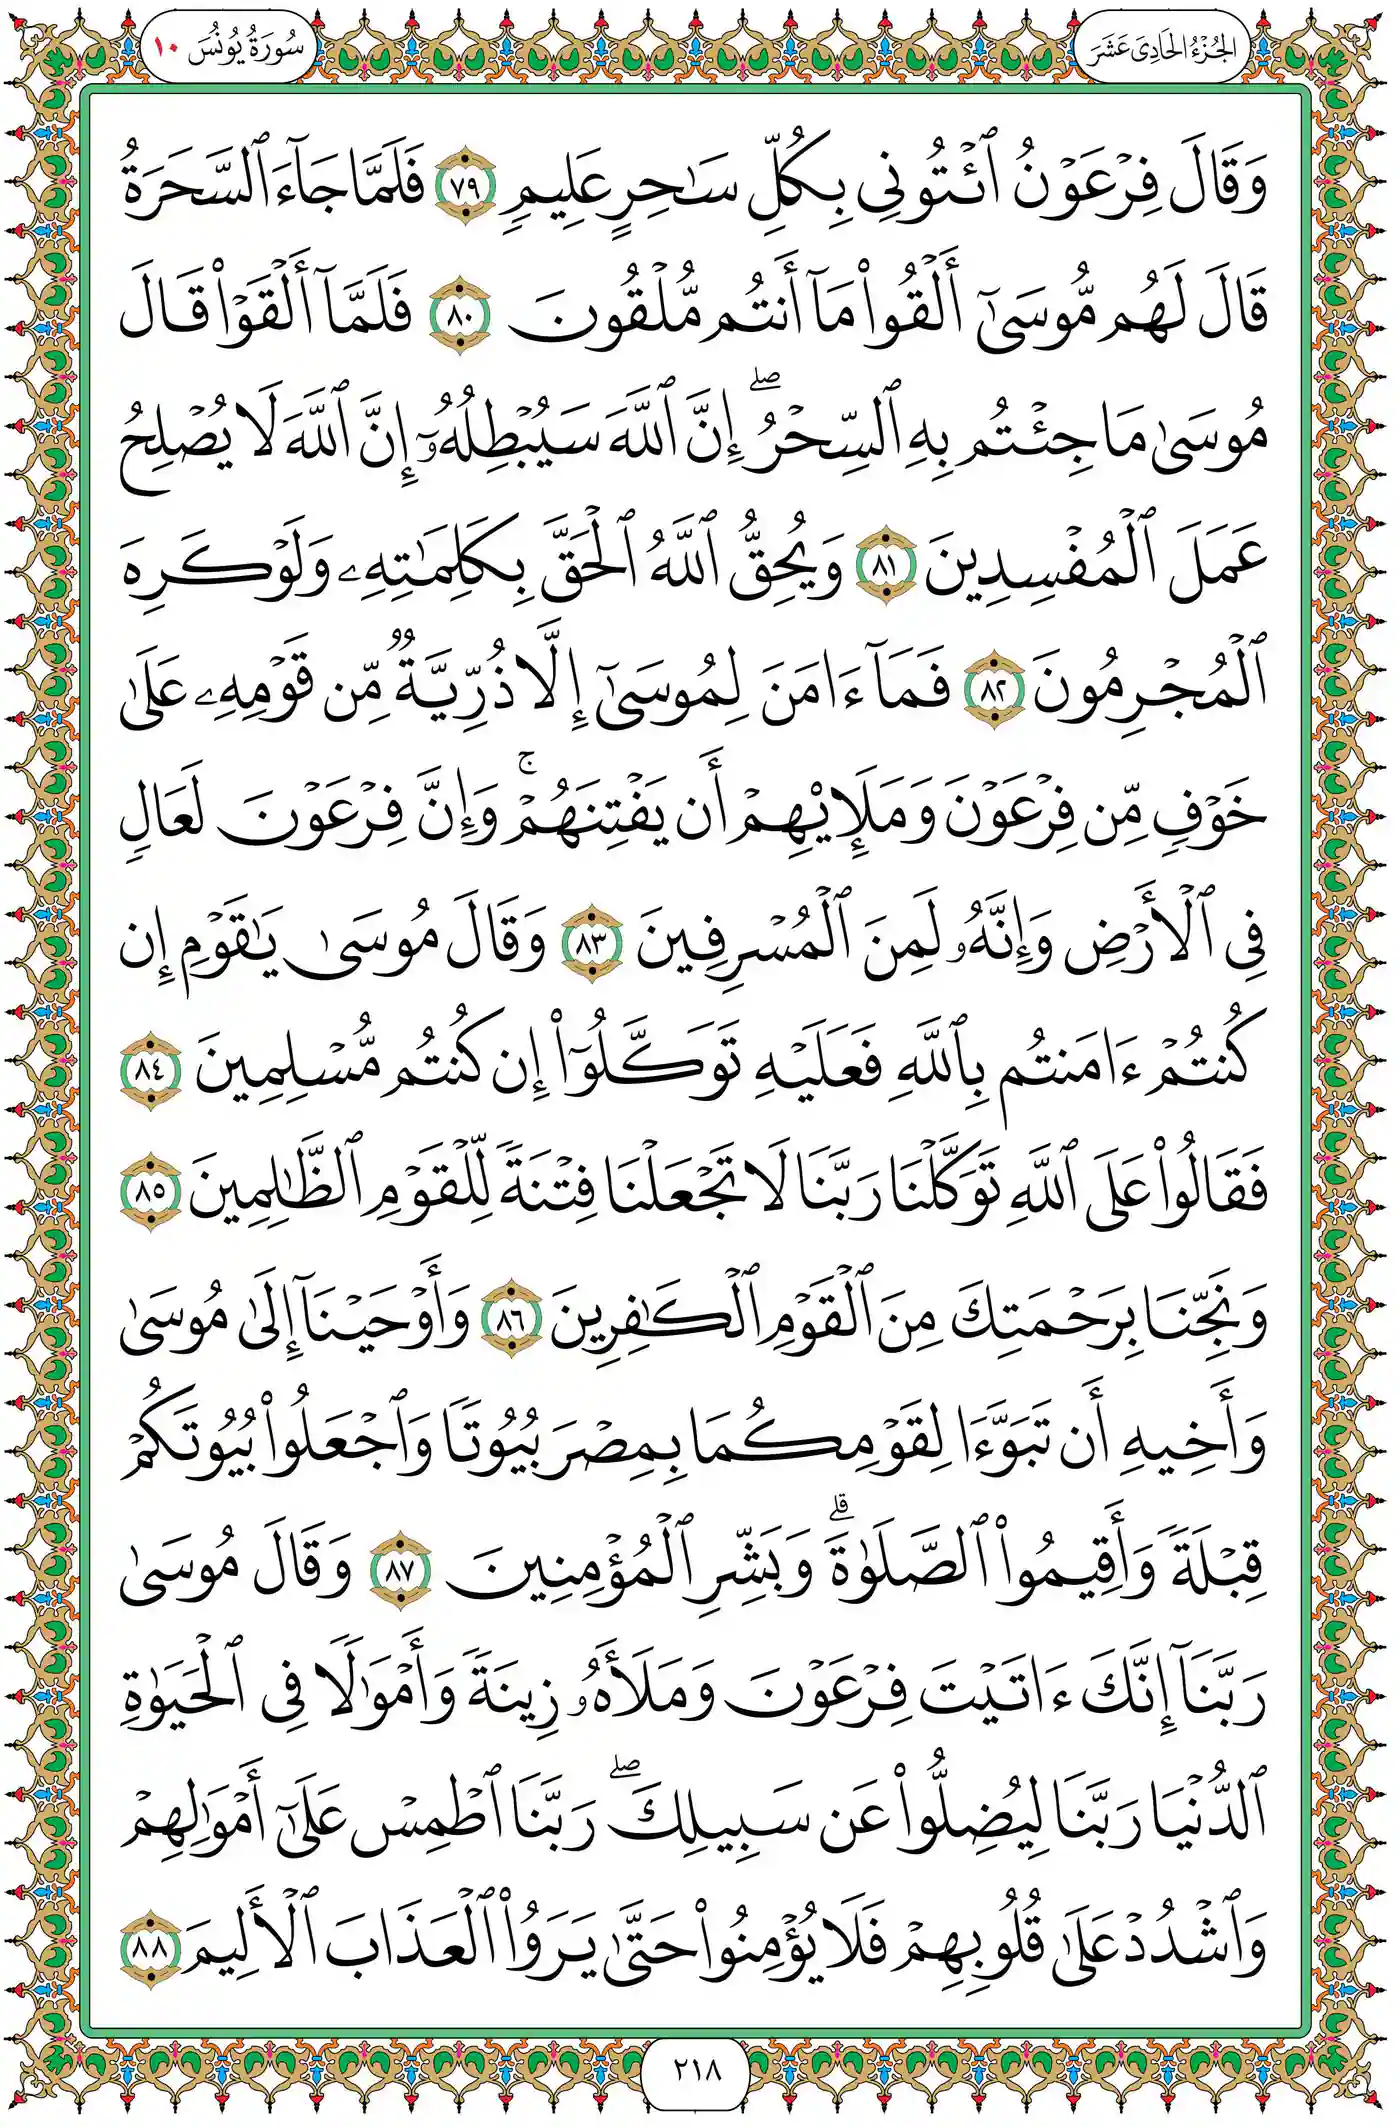 الجُزْءُ الحَادِىَ عَشَرَ
سُورَةُ يُونُسَ ١٠
وَقَالَ فِرْعَوْنُ ٱئْتُونِى بِكُلِّ سَـٰحِرٍ عَلِيمٍ ٧٩ فَلَمَّا جَآءَ ٱلسَّحَرَةُ
قَالَ لَهُم مُّوسَىٰٓ أَلْقُوا۟ مَآ أَنتُم مُّلْقُونَ ٨٠ فَلَمَّآ أَلْقَوْا۟ قَالَ
مُوسَىٰ مَا جِئْتُم بِهِ ٱلسِّحْرُ ۖ إِنَّ ٱللَّهَ سَيُبْطِلُهُۥٓ إِنَّ ٱللَّهَ لَا يُصْلِحُ
عَمَلَ ٱلْمُفْسِدِينَ ٨١ وَيُحِقُّ ٱللَّهُ ٱلْحَقَّ بِكَلِمَـٰتِهِۦ وَلَوْ كَرِهَ
ٱلْمُجْرِمُونَ ٨٢ فَمَآ ءَامَنَ لِمُوسَىٰٓ إِلَّا ذُرِّيَّةٌ مِّن قَوْمِهِۦ عَلَىٰ
خَوْفٍ مِّن فِرْعَوْنَ وَمَلَإِي۟هِمْ أَن يَفْتِنَهُمْ ۚ وَإِنَّ فِرْعَوْنَ لَعَالٍ
فِى ٱلْأَرْضِ وَإِنَّهُۥ لَمِنَ ٱلْمُسْرِفِينَ ٨٣ وَقَالَ مُوسَىٰ يَـٰقَوْمِ إِن
كُنتُمْ ءَامَنتُم بِٱللَّهِ فَعَلَيْهِ تَوَكَّلُوٓا۟ إِن كُنتُم مُّسْلِمِينَ ٨٤
فَقَالُوا۟ عَلَى ٱللَّهِ تَوَكَّلْنَا رَبَّنَا لَا تَجْعَلْنَا فِتْنَةً لِّلْقَوْمِ ٱلظَّـٰلِمِينَ ٨٥
وَنَجِّنَا بِرَحْمَتِكَ مِنَ ٱلْقَوْمِ ٱلْكَـٰفِرِينَ ٨٦ وَأَوْحَيْنَآ إِلَىٰ مُوسَىٰ
وَأَخِيهِ أَن تَبَوَّءَا لِقَوْمِكُمَا بِمِصْرَ بُيُوتًا وَٱجْعَلُوا۟ بُيُوتَكُمْ
قِبْلَةً وَأَقِيمُوا۟ ٱلصَّلَوٰةَ ۗ وَبَشِّرِ ٱلْمُؤْمِنِينَ ٨٧ وَقَالَ مُوسَىٰ
رَبَّنَآ إِنَّكَ ءَاتَيْتَ فِرْعَوْنَ وَمَلَأَهُۥ زِينَةً وَأَمْوَٰلًا فِى ٱلْحَيَوٰةِ
ٱلدُّنْيَا رَبَّنَا لِيُضِلُّوا۟ عَن سَبِيلِكَ ۖ رَبَّنَا ٱطْمِسْ عَلَىٰٓ أَمْوَٰلِهِمْ
وَٱشْدُدْ عَلَىٰ قُلُوبِهِمْ فَلَا يُؤْمِنُوا۟ حَتَّىٰ يَرَوُا۟ ٱلْعَذَابَ ٱلْأَلِيمَ ٨٨
٢١٨